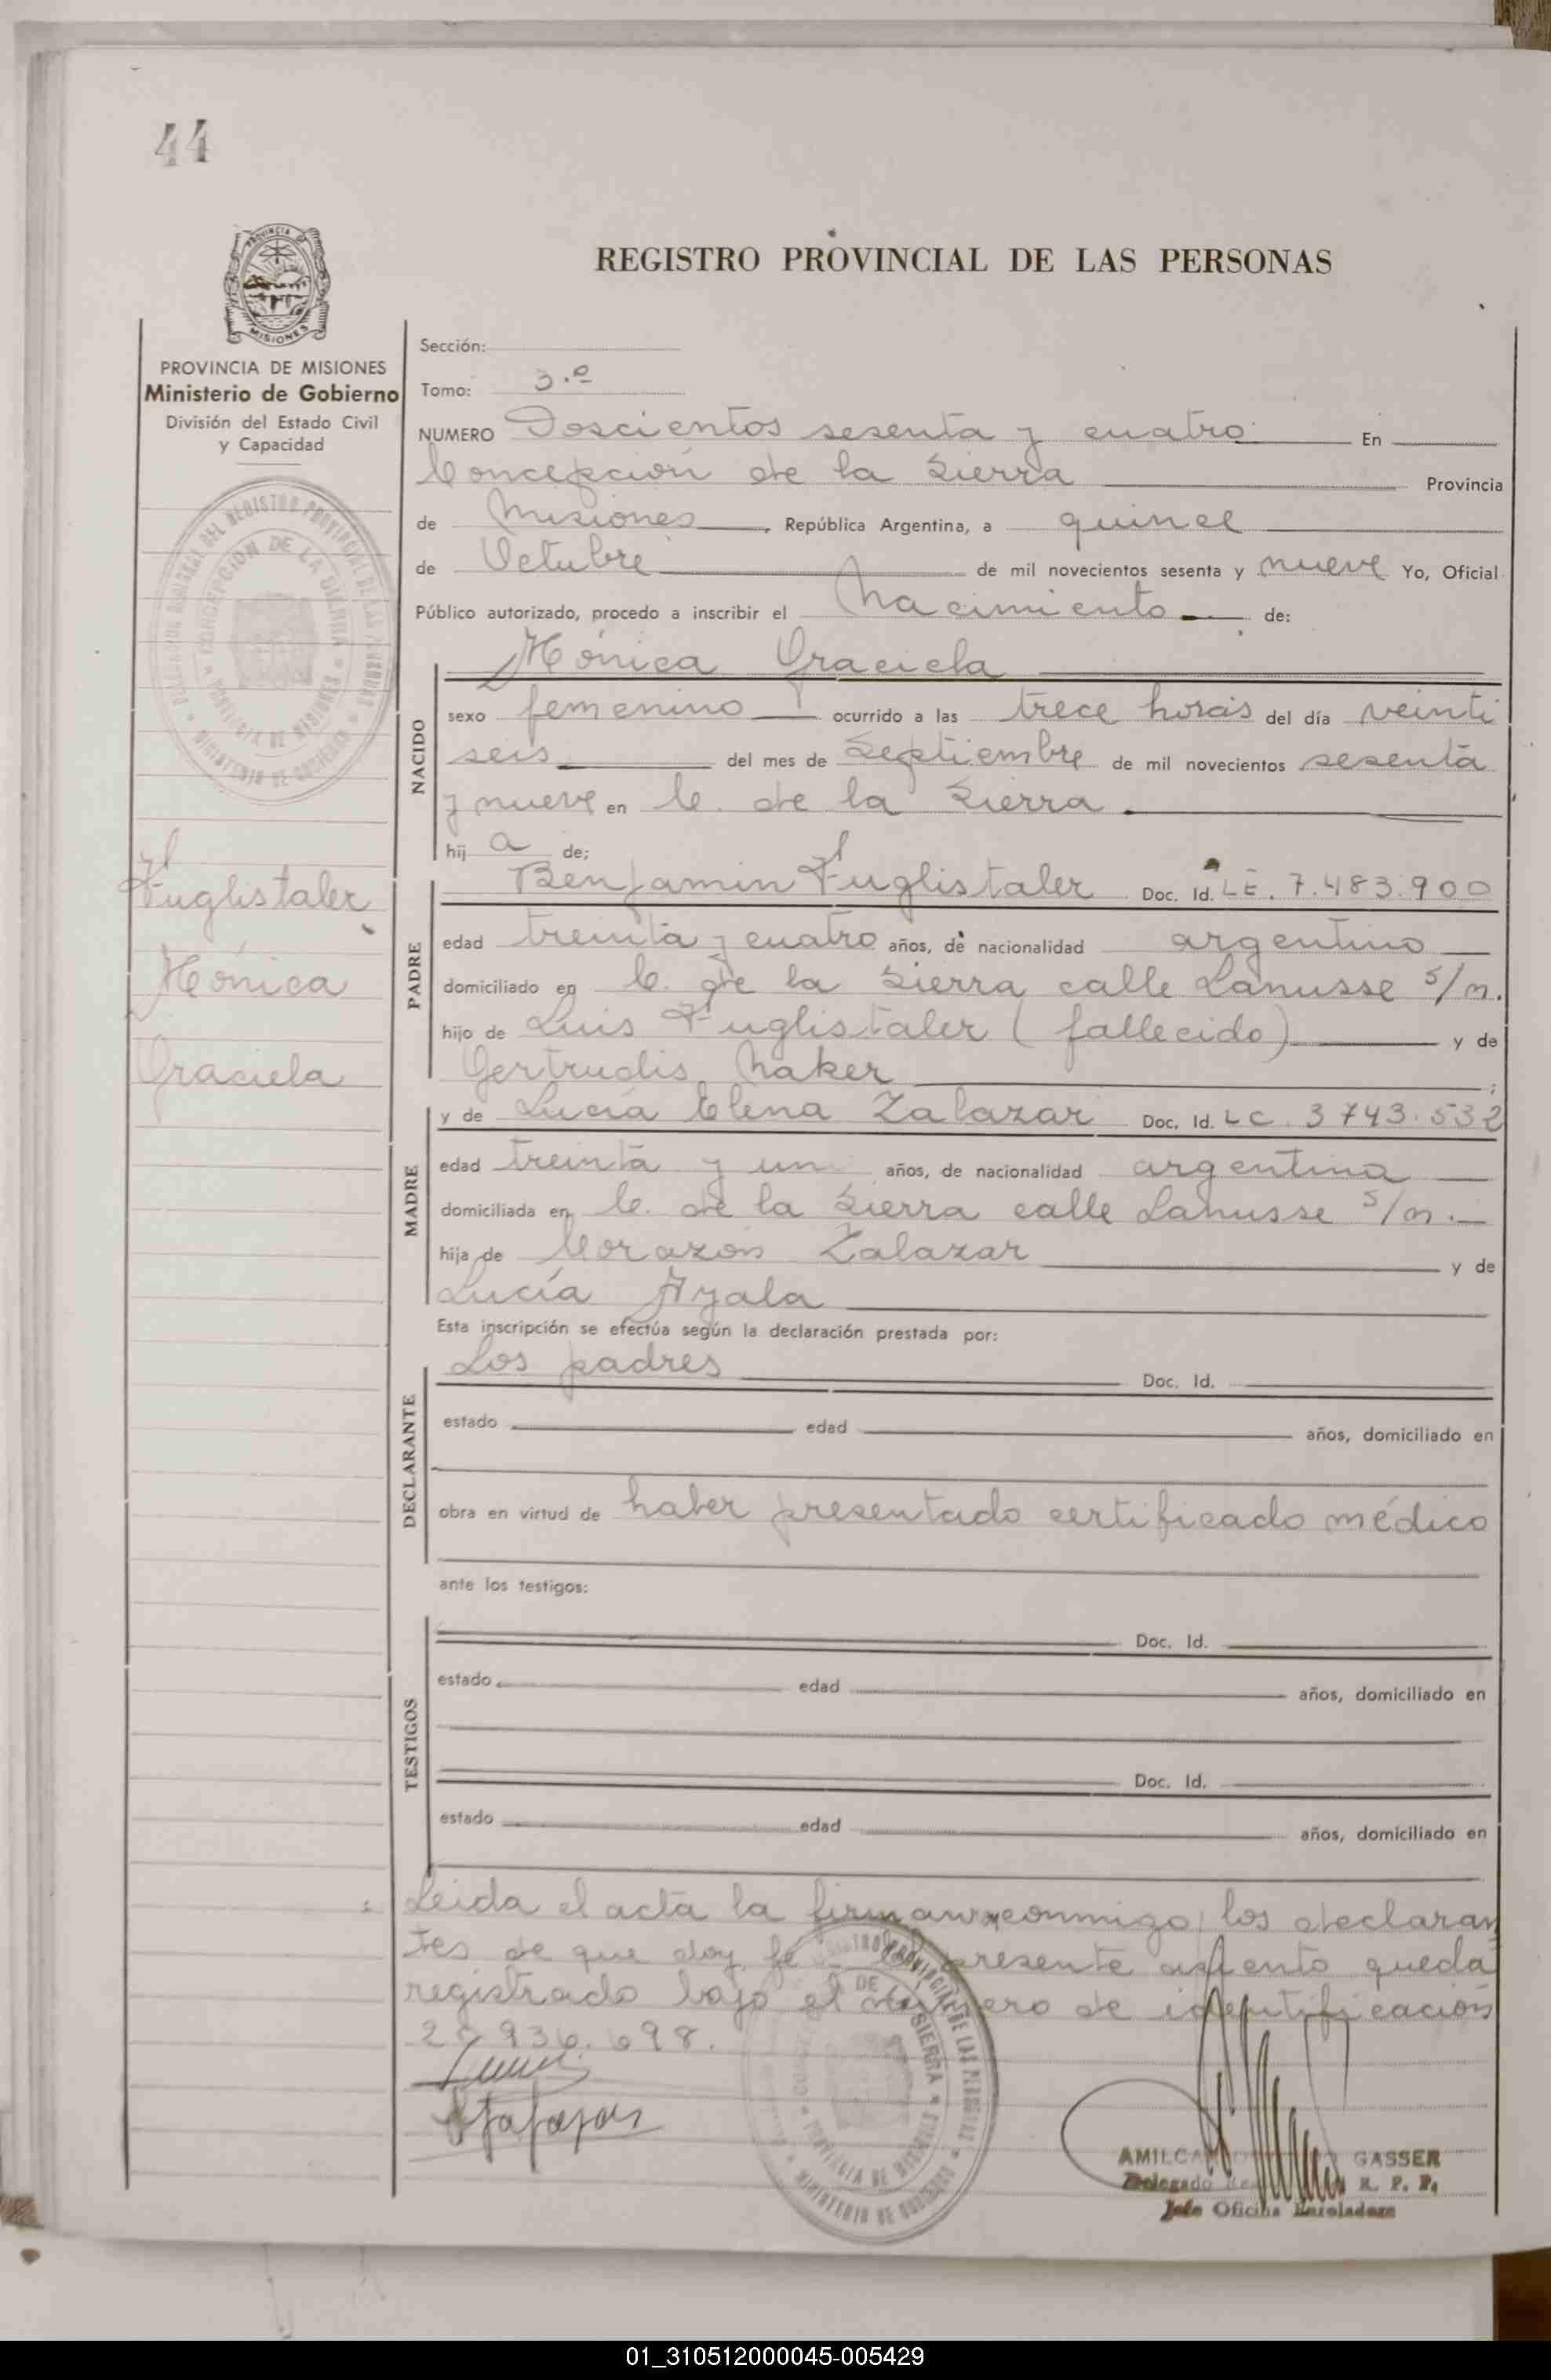 44
PROVINCIA
MISIONES
REGISTRO PROVINCIAL DE LAS PERSONAS
PROVINCIA DE MISIONES
Ministerio de Gobierno
División del Estado Civil
y Capacidad
Sección:
Tomo: 3.º
NUMERO Doscientos sesenta y cuatro En
Concepción de la Sierra Provincia
de Misiones, República Argentina, a quince
de Octubre de mil novecientos sesenta y nueve Yo, Oficial
Público autorizado, procedo a inscribir el nacimiento de:
Mónica Graciela
NACIDO
sexo femenino ocurrido a las trece horas del día veinti
seis del mes de Septiembre de mil novecientos sesenta
y nueve en C. de la Sierra
hij a de;
Fuglistaler
Mónica
Graciela
PADRE
Benjamin Fuglistaler Doc. Id. LE. 7.483.900
edad treinta y cuatro años, de nacionalidad argentino
domiciliado en C. de la Sierra calle Lanusse s/n.
hijo de Luis Fuglistaler (fallecido) y de
Gertrudis Naker ;
MADRE
y de Lucía Elena Zalazar Doc. Id. LC. 3743.532
edad treinta y un años, de nacionalidad argentina
domiciliada en C. de la Sierra calle Lanusse s/n.
hija de Corazón Zalazar y de
Lucía Ayala
Esta inscripción se efectúa según la declaración prestada por:
DECLARANTE
Los padres Doc. Id.
estado edad años, domiciliado en
obra en virtud de haber presentado certificado médico
ante los testigos:
TESTIGOS
Doc. Id.
estado edad años, domiciliado en
Doc. Id.
estado edad años, domiciliado en
Leida el acta la firman conmigo los declaran
tes de que doy fe presente asiento queda
registrado bajo el número de identificación
936.698.
AMILCA GASSER
Delegado R. P. P.
Jefe Oficina Enroladora
01_310512000045-005429